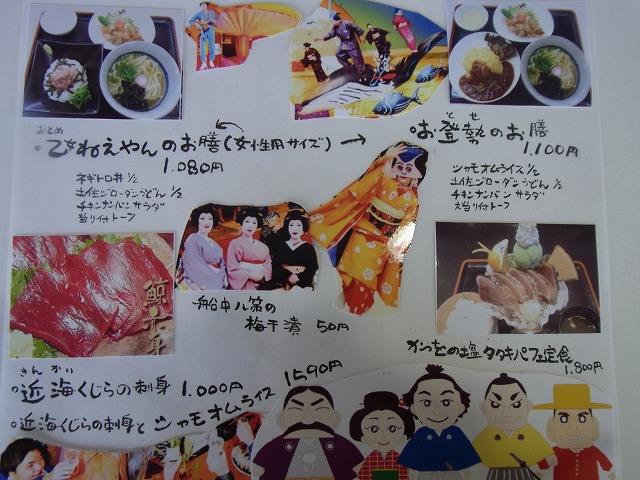 おとめ
。乙女ねえやんのお膳(女性用サイズ)
1.080円
ネギトロ丼 1/2
土佐ジローダシうどん 1/2
チキンナンバンサラダ
当り付トーフ
とせ
。お登勢のお膳
1.100円
シャモオムライス 1/2
土佐ジローダシうどん 1/2
チキンナンバンサラダ
大当り付トーフ
船中八策の
梅干漬 50円
かつをの塩タタキパフェ定食
1.800円
きんかい
。近海くじらの刺身 1.000円
。近海くじらの刺身とシャモオムライス
1590円